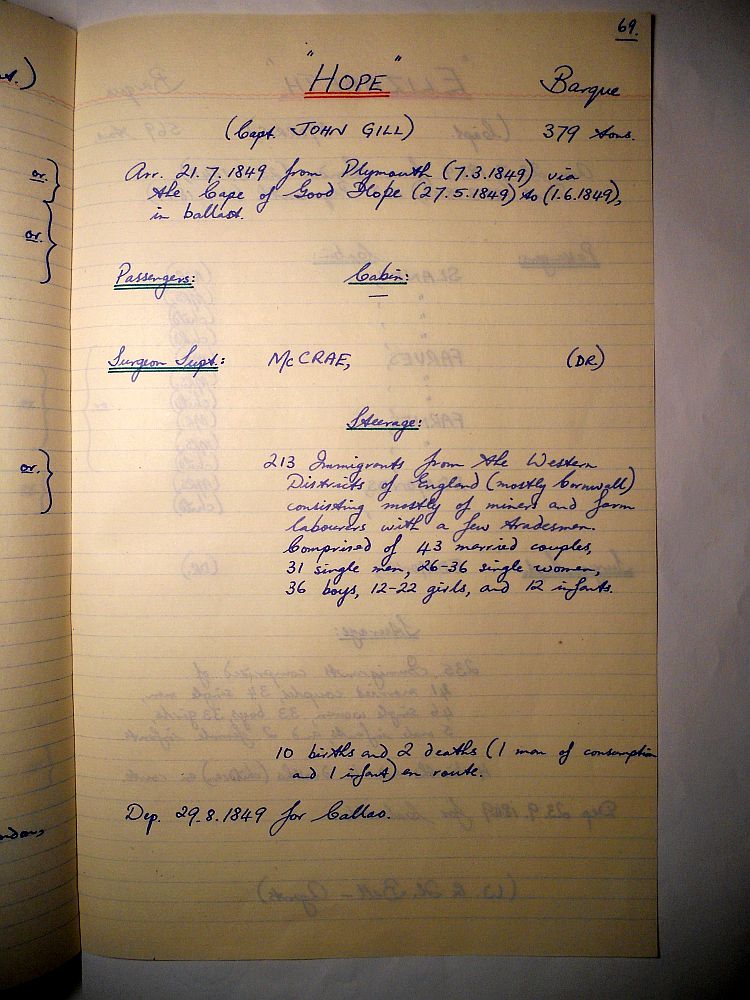 69.
"HOPE" Barque
(Capt. JOHN GILL) 379 tons.
Arr. 21.7.1849 from Plymouth (7.3.1849) via
the Cape of Good Hope (27.5.1849) to (1.6.1849),
in ballast.
Passengers: Cabin:
—
Surgeon Supt.: McCRAE, (DR)
Steerage:
213 Immigrants from the Western
Districts of England (mostly Cornwall)
consisting mostly of miners and farm
labourers with a few tradesmen.
Comprised of 43 married couples,
31 single men, 26-36 single women,
36 boys, 12-22 girls, and 12 infants.
10 births and 2 deaths (1 man of consumption
and 1 infant) en route.
Dep. 29.8.1849 for Callao.
or.
or.
or.